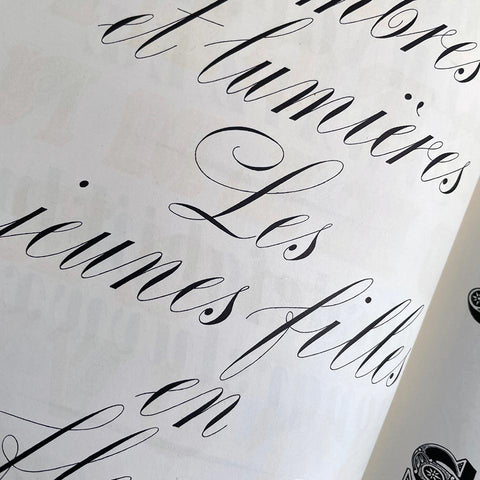 et lumières
Les
jeunes filles
en